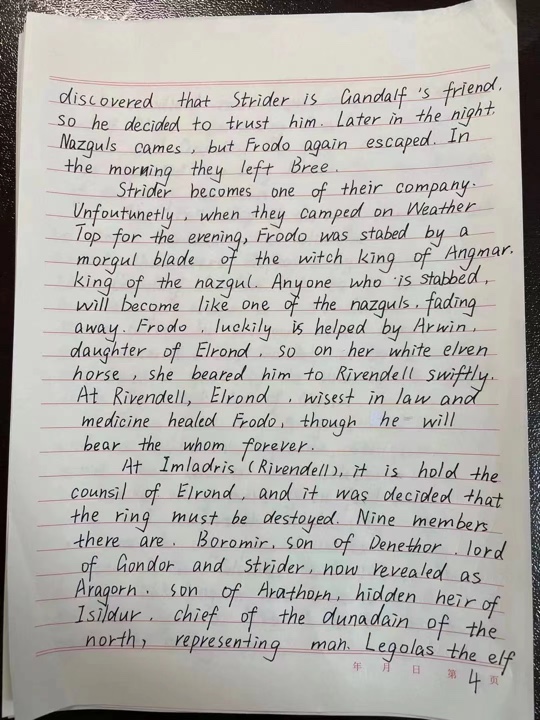 discovered that Strider is Gandalf's friend,
so he decided to trust him. Later in the night,
Nazguls cames, but Frodo again escaped. In
the morning they left Bree.
Strider becomes one of their company.
Unfoutunetly, when they camped on Weather
Top for the evening, Frodo was stabed by a
morgul blade of the witch king of Angmar.
king of the nazgul. Anyone who is stabbed,
will become like one of the nazguls, fading
away. Frodo, luckily is helped by Arwin,
daughter of Elrond, so on her white elven
horse, she beared him to Rivendell swiftly.
At Rivendell, Elrond, wisest in law and
medicine healed Frodo, though he will
bear the whom forever.
At Imladris (Rivendell), it is hold the
counsil of Elrond, and it was decided that
the ring must be destoyed. Nine members
there are. Boromir, son of Denethor, lord
of Gondor and Strider, now revealed as
Aragorn, son of Arathorn, hidden heir of
Isildur, chief of the dunadain of the
north, representing man. Legolas the elf
年 月 日 第 4 页